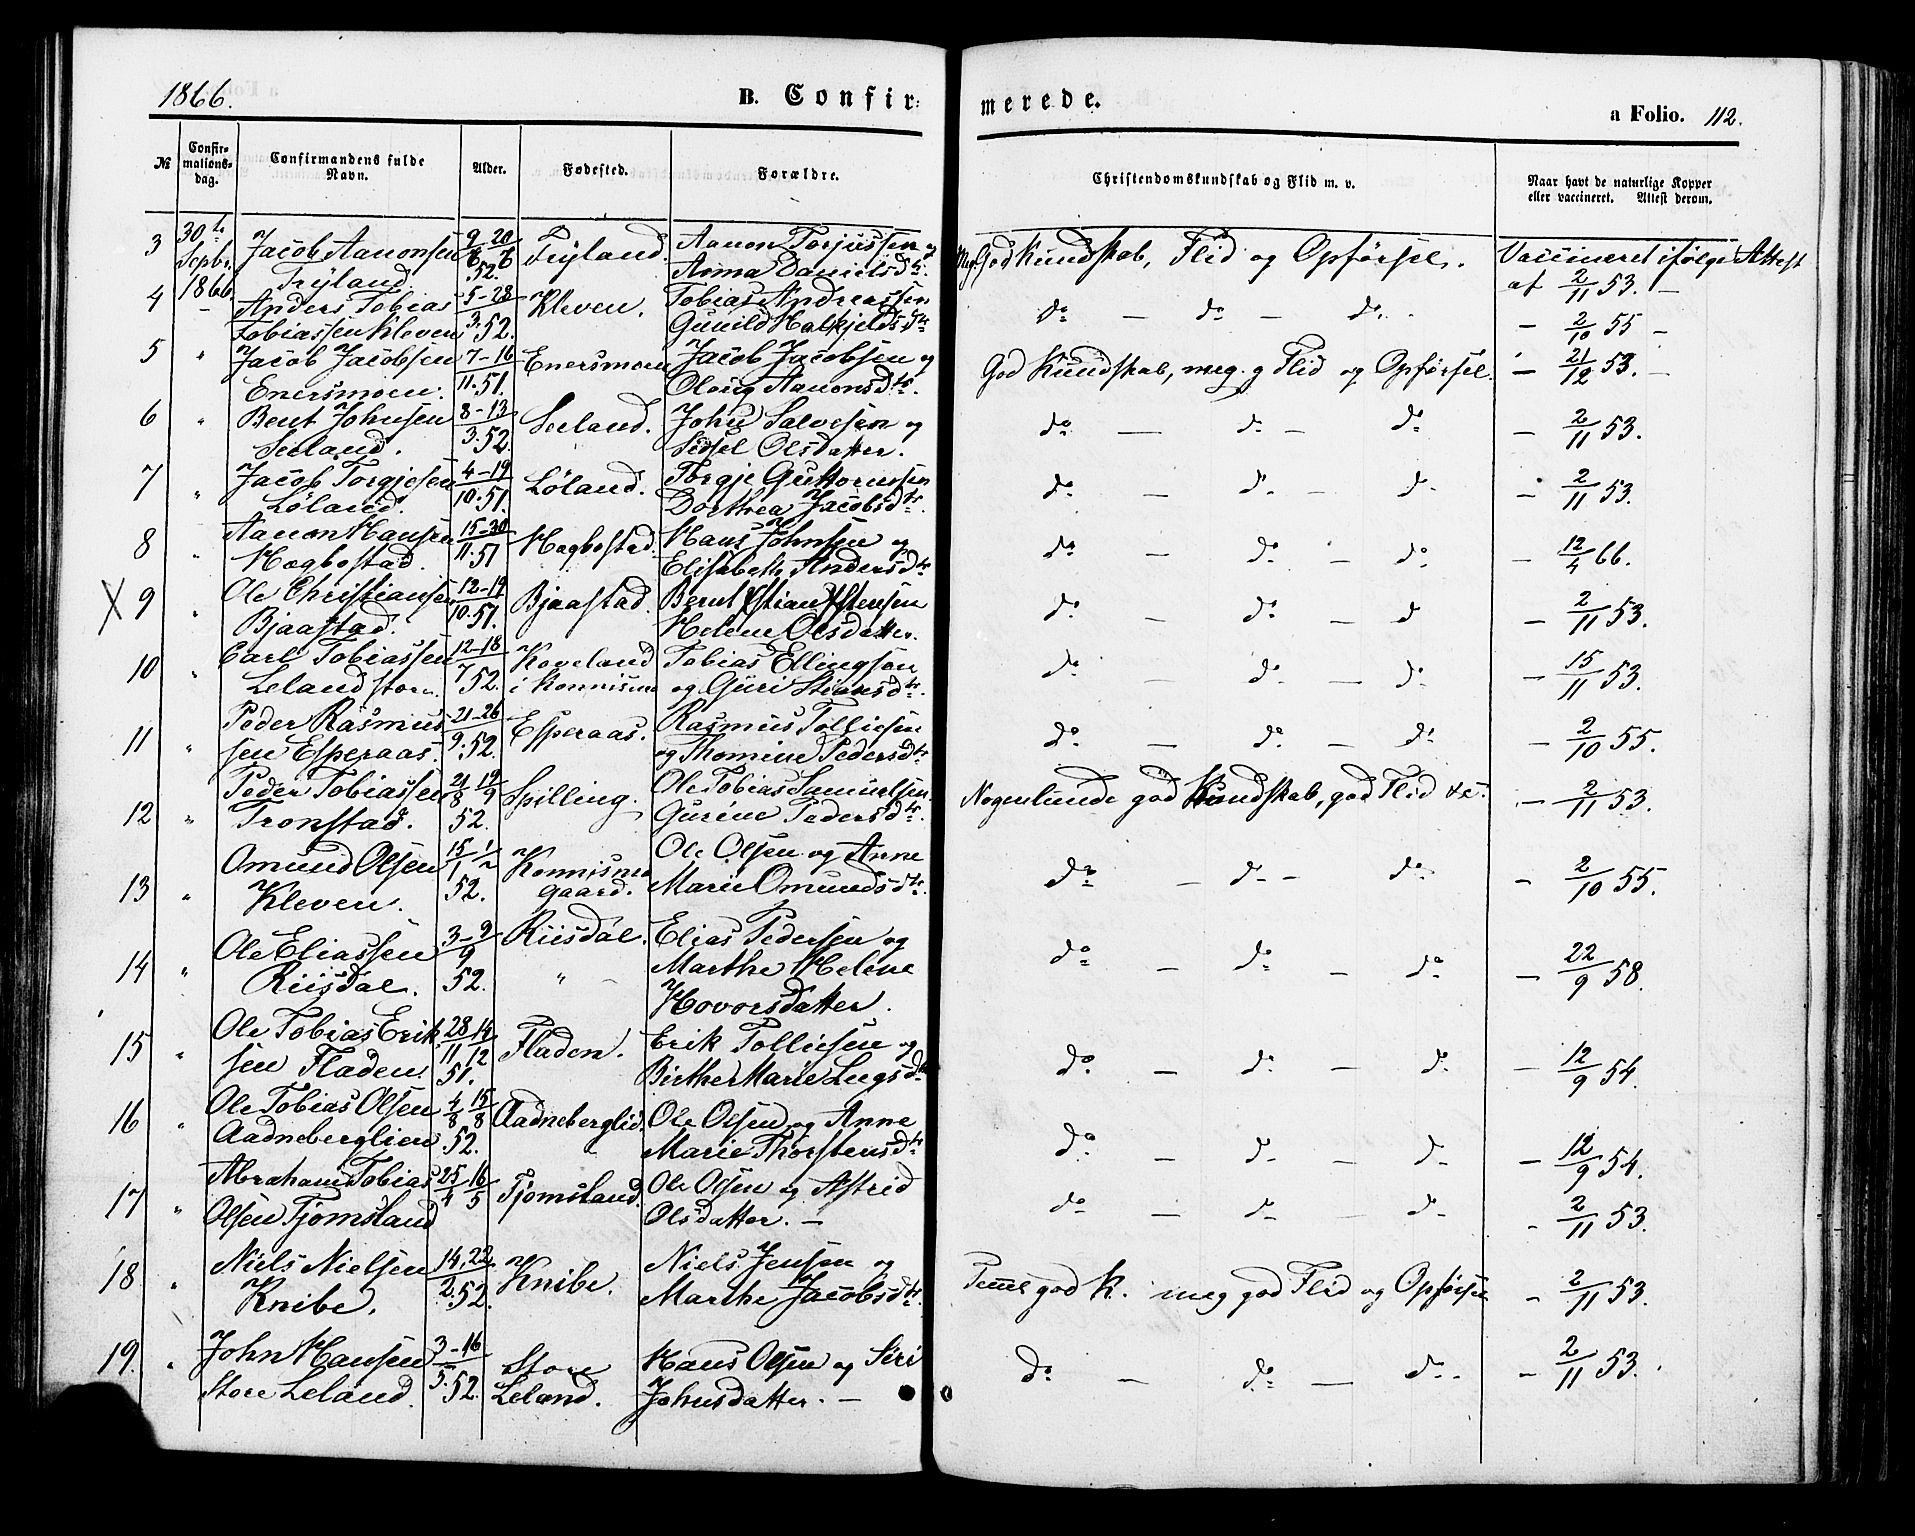 1866.
B. Confir:
merede.
a Folio. 112.
№
Confir-
mations-
dag.
Confirmandens fulde
Navn.
Alder.
Fødested.
Forældre.
Christendomskundskab og Flid m. v.
Naar havt de naturlige Kopper
eller vaccineret. Attest derom.
3 30te Sepbr. 1866 Jacob Aanonsen Tryland 9-20 6 6 52. Tryland. Aanon Torjussen og Anna Danielsdtr. Meg. God Kundskab, Flid og Opførsel. Vaccineret ifølge Attest af 2/11 53. —
4 – Anders Tobias Tobiassen Kleven 5-28 3. 52. Kleven. Tobias Andreassen Gunild Halkjeldsdtr do — do — do. – 2/10 55 –
5 " Jacob Jacobsen Enersmoen. 7-16 11. 51. Enersmoen Jacob Jacobsen og Aanonsdtr God Kundskab, meg. g Flid og Opførsel. – 21/12 53. –
6 " Bent Johnsen Seeland. 8-13 3. 52. Seeland. John Salvesen og Sidsel Olsdatter. do — do – do – 2/11 53.
7 " Jacob Torgjesen Løland. 4-19 10. 51. Løland. Torgje Guttormsen Dorthea Jacobsdtr. do — do – do – 2/11 53.
8 " Aanon Hansen Hægbostad. 15-30 11. 51 Hægbostad. Hans Johnsen og Elisabeth Andersdtr do – do – do. – 12/4 66.
X 9 " Ole Christiansen Bjaastad. 12-19 10. 51. Bjaastad. Bernt Stensen Helene Olsdatter. do – do. – d – 2/11 53.
10 " Carl Tobiassen Leland store. 12-18 7 52. Koveland i Konnismo Tobias Ellingsen og Guri Stiansdtr. do – do. – do. – 15/11 53.
11 " Peder Rasmussen Esperaas. 21-26 9. 52. Esperaas. Rasmus Tolliesen og Thomine Pedersdtr do. – do. – do – 2/10 55.
12 " Peder Tobiassen Tronstad. 21/8 19/9 52. Spilling. Ole Tobias Samuelsen. Gurine Pedersdtr. Nogenlunde god Kundskab, god Flid &c. – 2/11 53.
13 " Omund Olsen Kleven. 15/1 1/2 52. Konnismo gaard. Ole Olsen og Anne Marie Omundsdtr. do – do – do – 2/10 55.
14 " Ole Eliassen Riisdal. 3-9 9 52. Riisdal. " – Elias Pedersen og Marthe Helene Hovorsdatter. do – do – do – 22/9 58.
15 " Ole Tobias Eriksen Fladen. 28/11 14/12 51. Fladen. Erik Tolliesen og Birthe Marie do – do – do – 12/9 54.
16 " Ole Tobias Olsen Aadneberglien 4/8 15/8 52. Aadneberglid. Ole Olsen og Anne Marie Thorstensdtr do – do – do – 12/9 54.
17 " Abraham Tobias Olsen Tjomsland 25/4 16/5 Tjomsland. Ole Olsen og Astrid Olsdatter. – do – do – do. – 2/11 53.
18 " Niels Nielsen Knibe. 14, 22. 2. 52. Knibe. Niels Jensen og Marthe Jacobsdtr. god K. meg god Flid og Opførsel – 2/11 53.
19. " John Hansen Store Leland. 3-16 5. 52. Store Leland. Hans Olsen og Siri Johnsdatter. – do – do – do. – 2/11 53.